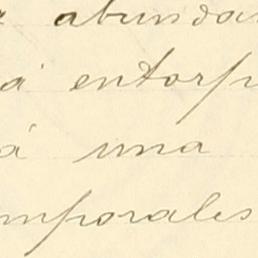 abunda
á entorp
á una
mporales